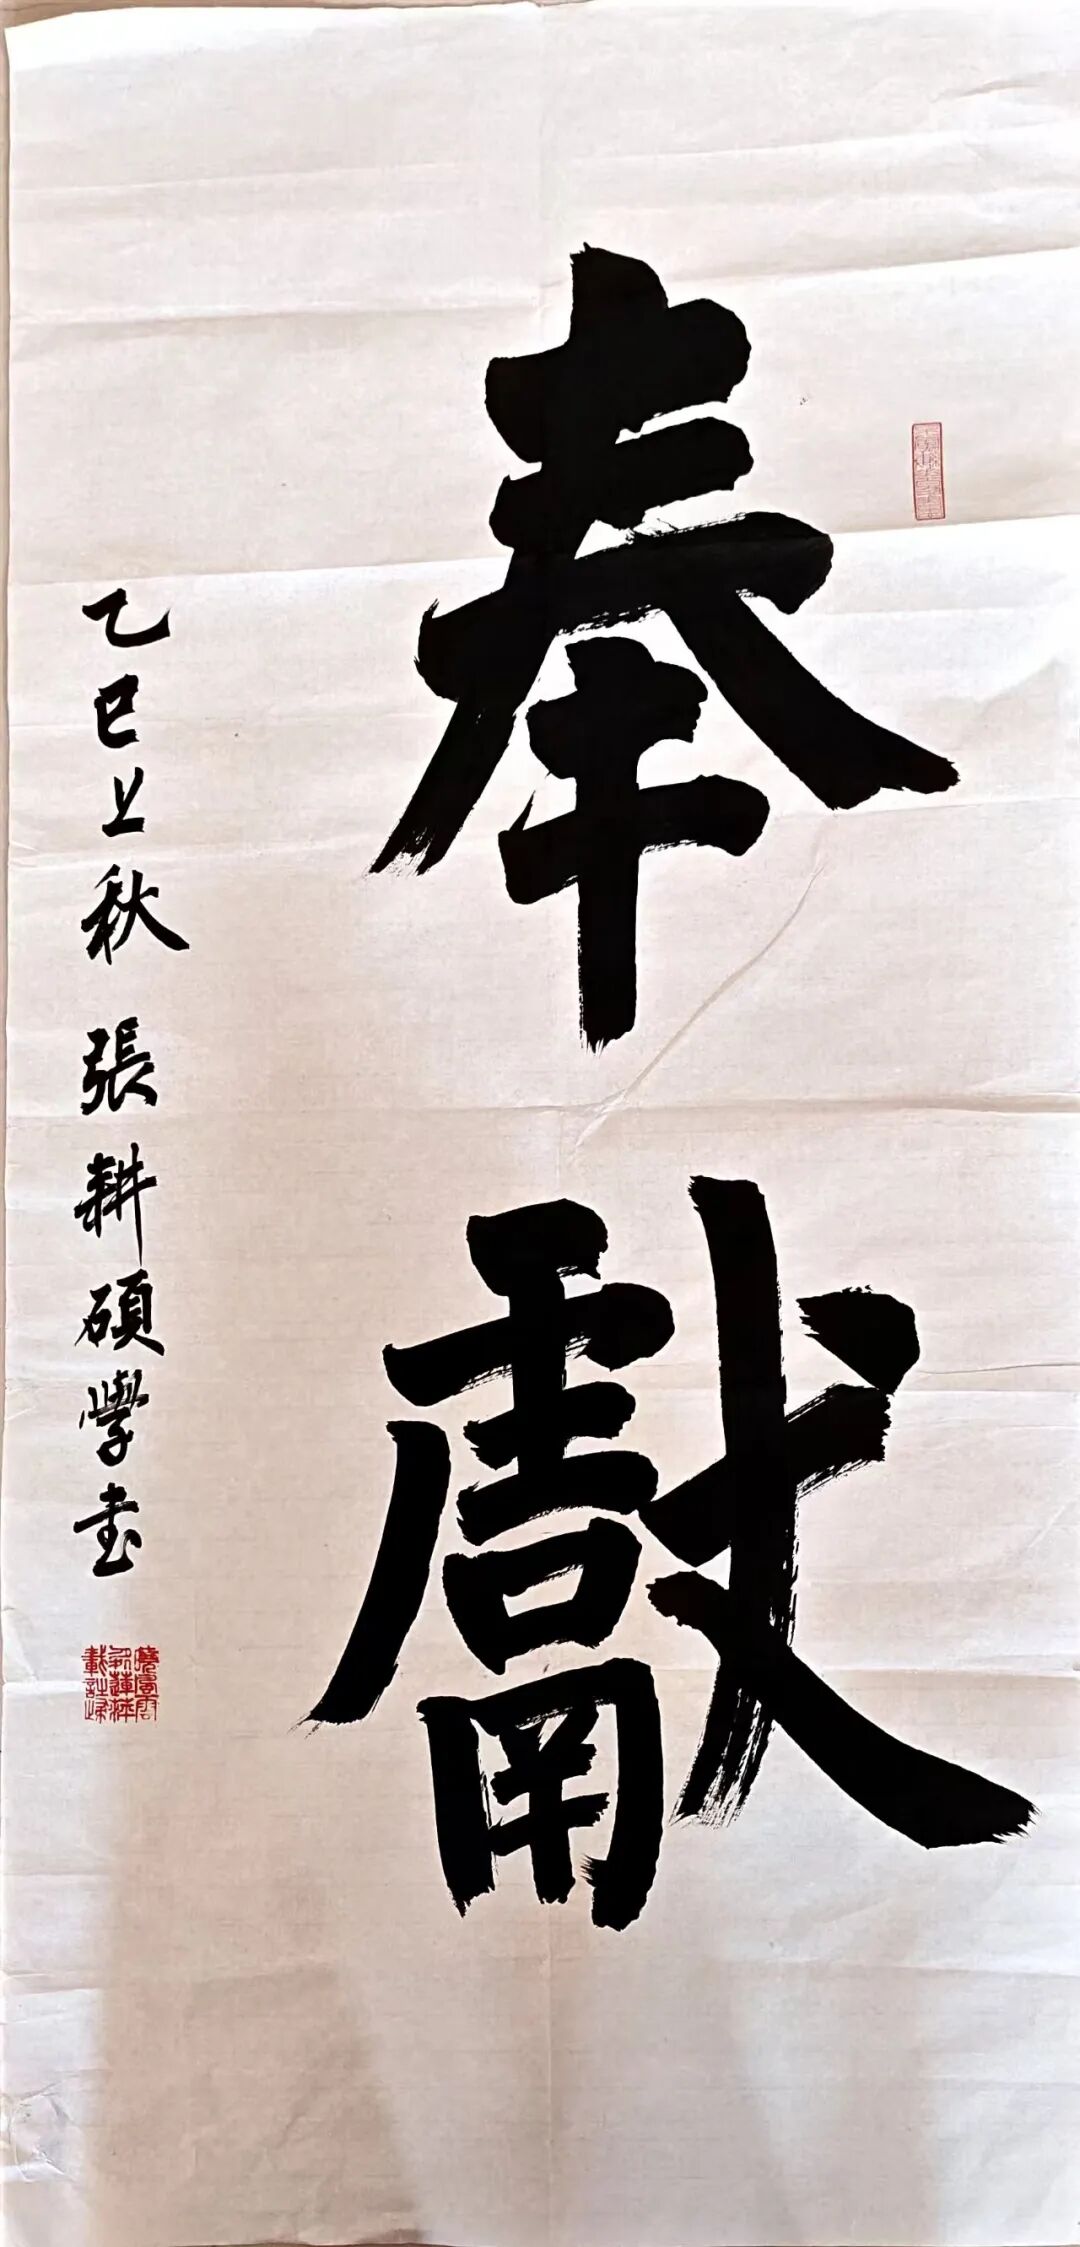 奉獻
乙巳之秋 張耕碩學书